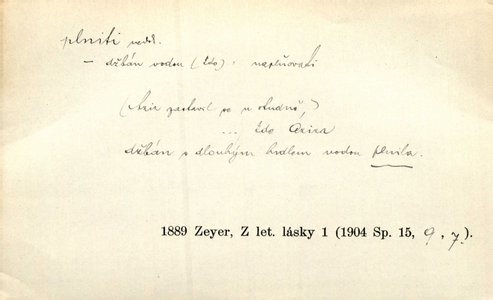 plniti ned.
– džbán vodou (kdo), naplňovati
(Aziz zastavil se u studně,)
... kdo Aziza
džbán s dlouhým hrdlem vodou plnila.
1889 Zeyer, Z let. lásky 1 (1904 Sp. 15, 9, 7).